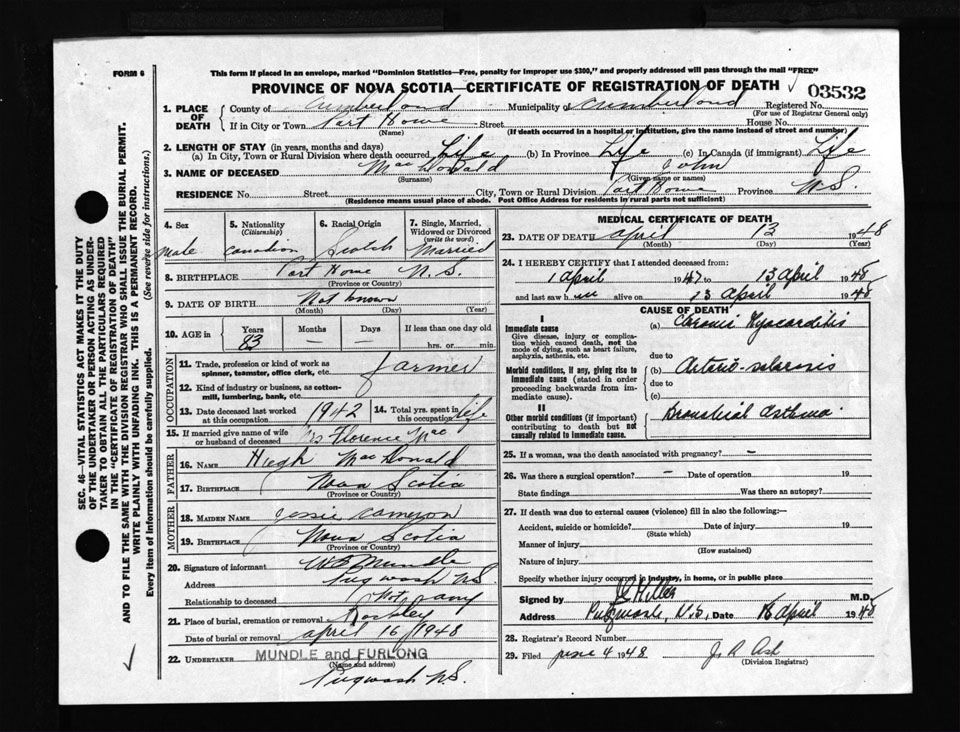 FORM 6
This form if placed in an envelope, marked "Dominion Statistics—Free, penalty for improper use $300," and properly addressed will pass through the mail "FREE"
PROVINCE OF NOVA SCOTIA—CERTIFICATE OF REGISTRATION OF DEATH √ 03532
1. PLACE OF DEATH
County of Cumberland Municipality of Cumberland Registered No.
(For use of Registrar General only)
If in City or Town Port Howe Street House No.
(Name) (If death occurred in a hospital or institution, give the name instead of street and number)
2. LENGTH OF STAY (in years, months and days)
(a) In City, Town or Rural Division where death occurred Life (b) In Province Life (c) In Canada (if immigrant) Life
3. NAME OF DECEASED MacDonald John
(Surname) (Given name or names)
RESIDENCE No. Street City, Town or Rural Division Port Howe Province N.S.
(Residence means usual place of abode. Post Office Address for residents in rural parts not sufficient)
4. Sex
male
5. Nationality
(Citizenship)
Canadian
6. Racial Origin
Scotch
7. Single, Married, Widowed or Divorced
(write the word)
Married
8. BIRTHPLACE Port Howe N.S.
(Province or Country)
9. DATE OF BIRTH Not known
(Month) (Day) (Year)
10. AGE in
Years Months Days If less than one day old
83 — — hrs. or min.
OCCUPATION
11. Trade, profession or kind of work as
spinner, teamster, office clerk, etc. farmer
12. Kind of industry or business, as cotton-
mill, lumbering, bank, etc.
13. Date deceased last worked
at this occupation 1942
14. Total yrs. spent in
this occupation life
15. If married give name of wife
or husband of deceased Mrs Florence Mac
FATHER
16. NAME Hugh MacDonald
17. BIRTHPLACE Nova Scotia
(Province or Country)
MOTHER
18. MAIDEN NAME Jessie Cameron
19. BIRTHPLACE Nova Scotia
(Province or Country)
20. Signature of informant Mundle
Address Pugwash N.S.
Relationship to deceased Not any
21. Place of burial, cremation or removal Rockley
Date of burial or removal april 16/1948
22. UNDERTAKER MUNDLE and FURLONG
(Name and address)
Pugwash N.S.
MEDICAL CERTIFICATE OF DEATH
23. DATE OF DEATH april 13 1948
(Month) (Day) (Year)
24. I HEREBY CERTIFY that I attended deceased from:
1 April 1947 to 13 April 1948
and last saw h im alive on 13 April 1948
CAUSE OF DEATH
I
Immediate cause
Give disease, injury or complica-
tion which caused death, not the
mode of dying, such as heart failure,
asphyxia, asthenia, etc.
(a) Chronic Myocarditis
due to
Morbid conditions, if any, giving rise to
immediate cause (stated in order
proceeding backwards from im-
mediate cause).
(b) Arterio-sclerosis
due to
(c)
II
Other morbid conditions (if important)
contributing to death but not
causally related to immediate cause.
Bronchial Asthma
25. If a woman, was the death associated with pregnancy? —
26. Was there a surgical operation? — Date of operation 19
State findings Was there an autopsy?
27. If death was due to external causes (violence) fill in also the following:—
Accident, suicide or homicide? Date of injury 19
(State which)
Manner of injury
(How sustained)
Nature of injury
Specify whether injury occurred in industry, in home, or in public place
Signed by Hiller M.D.
Address Pugwash, N.S, Date 16 April 1948
28. Registrar's Record Number
29. Filed june 4 1948 J. A. Ash
(Division Registrar)
SEC. 46—VITAL STATISTICS ACT MAKES IT THE DUTY
OF THE UNDERTAKER OR PERSON ACTING AS UNDER-
TAKER TO OBTAIN ALL THE PARTICULARS REQUIRED
IN THE "CERTIFICATE OF REGISTRATION OF DEATH"
AND TO FILE THE SAME WITH THE DIVISION REGISTRAR WHO SHALL ISSUE THE BURIAL PERMIT.
WRITE PLAINLY WITH UNFADING INK. THIS IS A PERMANENT RECORD.
Every item of information should be carefully supplied. (See reverse side for instructions.)